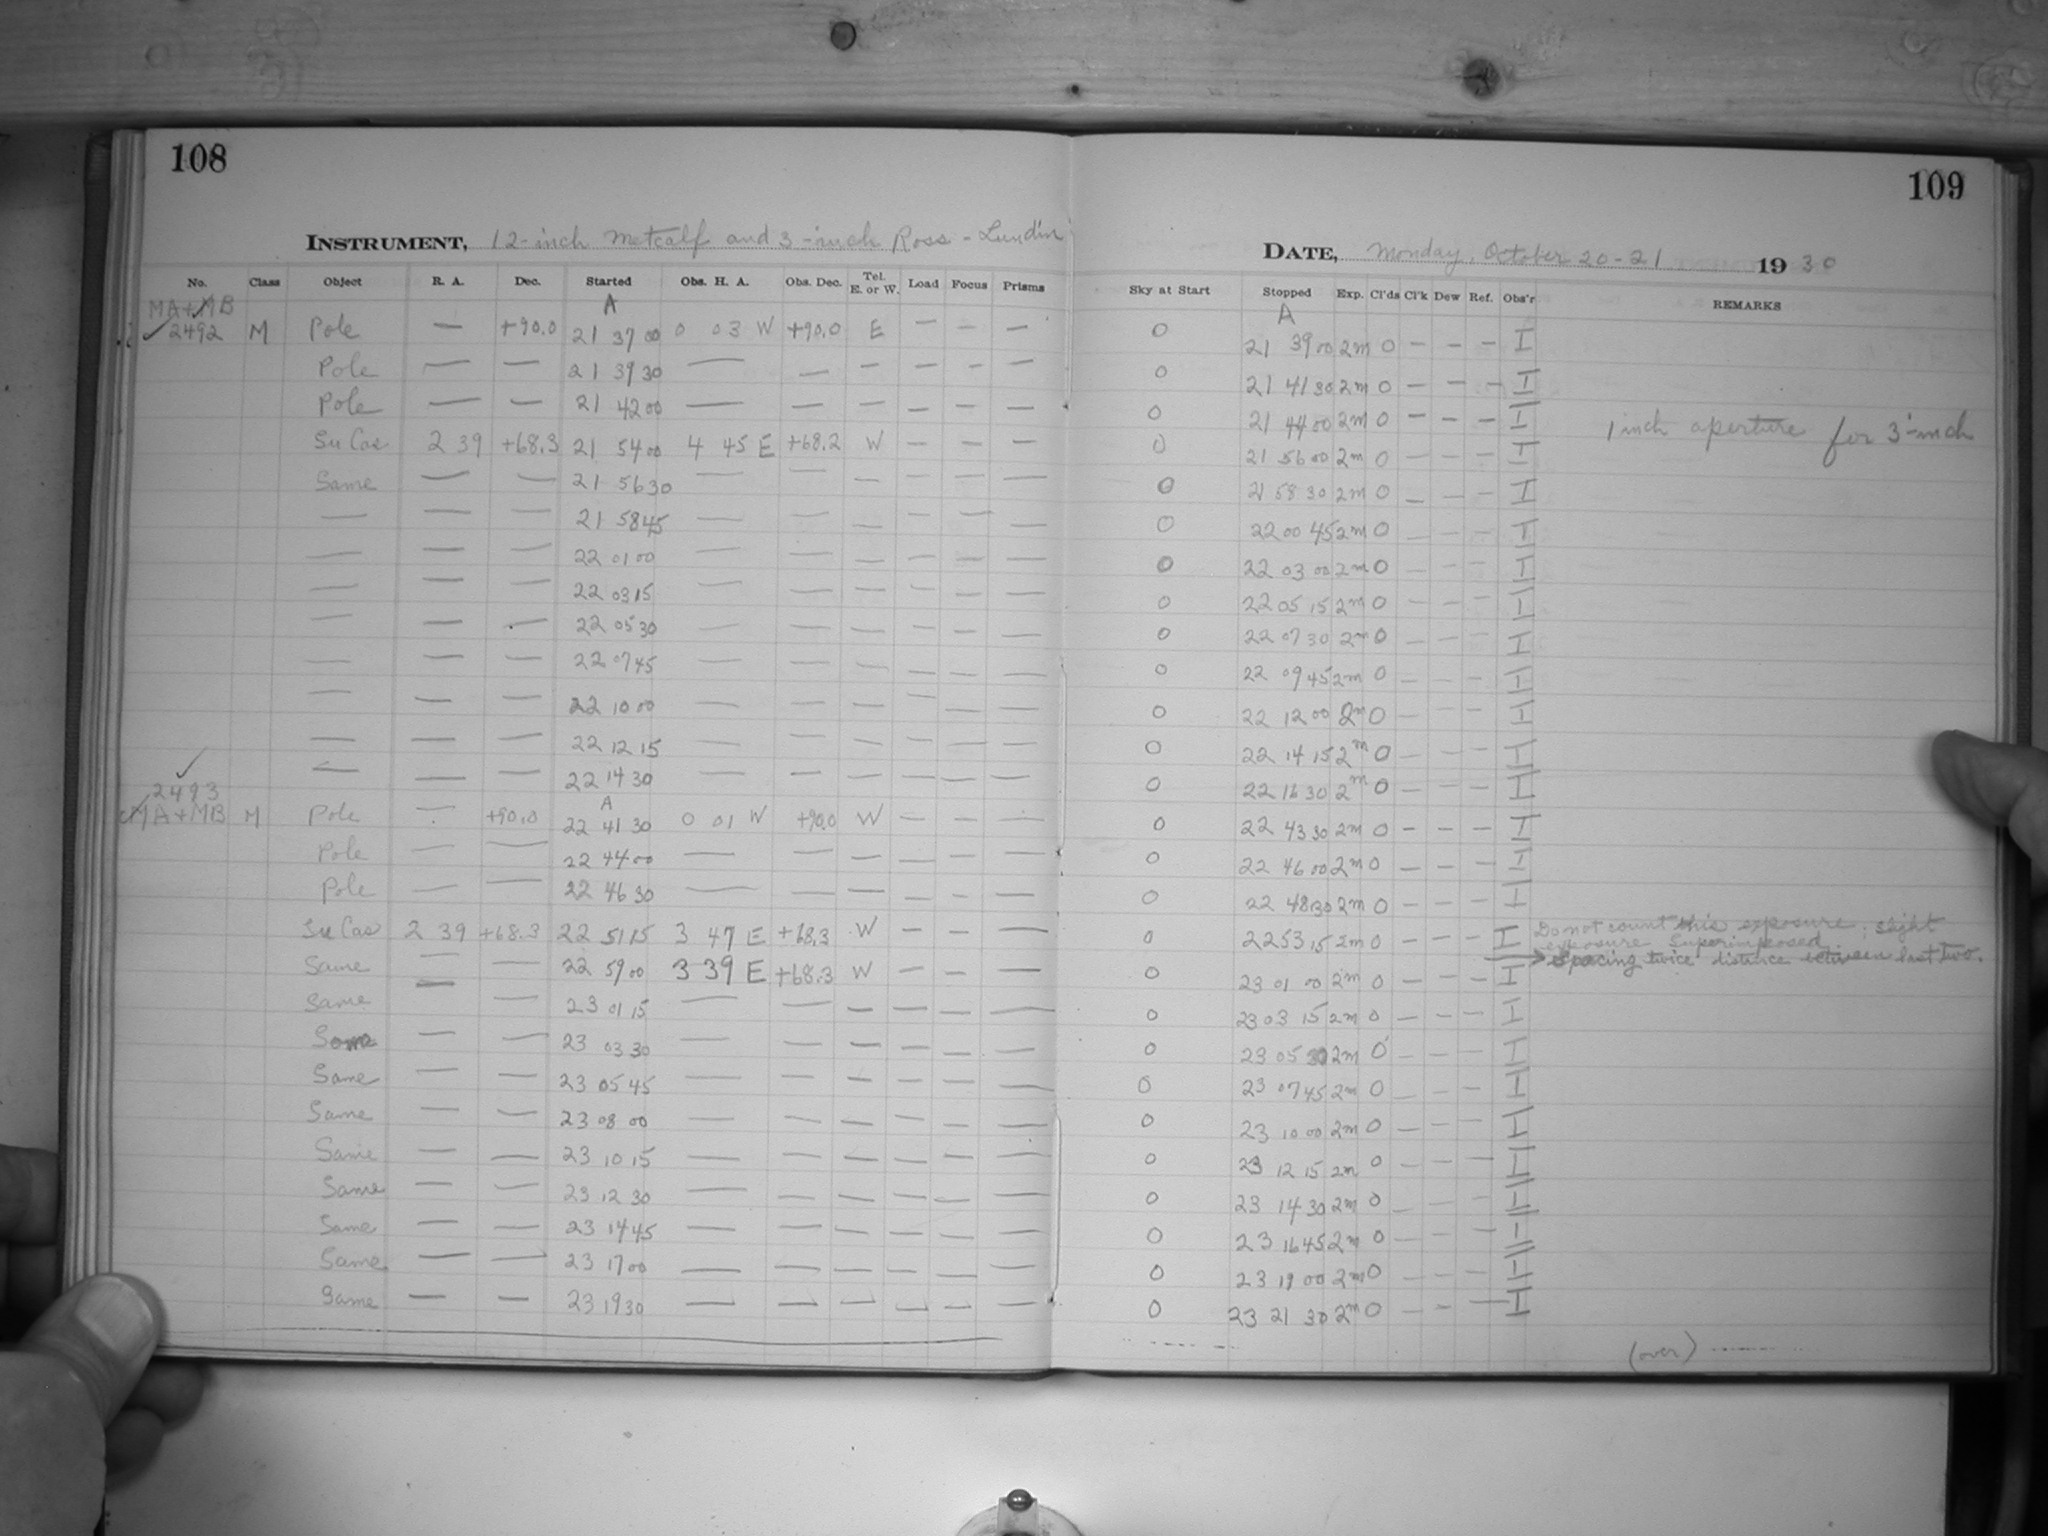 108
INSTRUMENT, 12-inch Metcalf and 3-inch Ross-Lundin
No. Class Object R. A. Dec. Started Obs. H. A. Obs. Dec. Tel. E. or W. Load Focus Prisms
MA+MB A
2492 M Pole — +90.0 21 37 00 0 03 W +90.0 E — — —
Pole — — 21 39 30 — — — — — —
Pole — — 21 42 00 — — — — — —
Su Cas 2 39 +68.3 21 54 00 4 45 E +68.2 W — — —
Same — — 21 56 30 — — — — —
— — — 21 58 45 — — — — — —
— — — 22 01 00 — — — — — —
— — — 22 03 15 — — — — — —
— — — 22 05 30 — — — — — —
— — — 22 07 45 — — — — — —
— — — 22 10 00 — — — — — —
— — — 22 12 15 — — — — — —
— — — 22 14 30 — — — — — —
2493 A
MA+MB M Pole — +90.0 22 41 30 0 01 W +90.0 W — — —
Pole — — 22 44 00 — — — — — —
Pole — — 22 46 30 — — — — — —
Su Cas 2 39 +68.3 22 51 15 3 47 E +68.3 W — — —
Same — — 22 59 00 3 39 E +68.3 W — — —
Same — — 23 01 15 — — — — — —
Same — — 23 03 30 — — — — — —
Same — — 23 05 45 — — — — — —
Same — — 23 08 00 — — — — — —
Same — — 23 10 15 — — — — — —
Same — — 23 12 30 — — — — — —
Same — — 23 14 45 — — — — — —
Same — — 23 17 00 — — — — — —
Same — — 23 19 30 — — — — — —
109
DATE, Monday, October 20-21 1930
Sky at Start Stopped Exp. Cl'ds Cl'k Dew Ref. Obs'r REMARKS
A
0 21 39 00 2m 0 — — — H
0 21 41 30 2m 0 — — — H
0 21 44 00 2m 0 — — — H 1 inch aperture for 3-inch
0 21 56 00 2m 0 — — — H
0 21 58 30 2m 0 — — — H
0 22 00 45 2m 0 — — — H
0 22 03 00 2m 0 — — — H
0 22 05 15 2m 0 — — — H
0 22 07 30 2m 0 — — — H
0 22 09 45 2m 0 — — — H
0 22 12 00 2m 0 — — — H
0 22 14 15 2m 0 — — — H
0 22 16 30 2m 0 — — — H
0 22 43 30 2m 0 — — — H
0 22 46 00 2m 0 — — — H
0 22 48 30 2m 0 — — — H
0 22 53 15 2m 0 — — — H Do not count this exposure; slight
exposure superimposed.
0 23 01 00 2m 0 — — — H Spacing twice distance between last two.
0 23 03 15 2m 0 — — — H
0 23 05 30 2m 0 — — — H
0 23 07 45 2m 0 — — — H
0 23 10 00 2m 0 — — — H
0 23 12 15 2m 0 — — — H
0 23 14 30 2m 0 — — — H
0 23 16 45 2m 0 — — — H
0 23 19 00 2m 0 — — — H
0 23 21 30 2m 0 — — — H
(over)